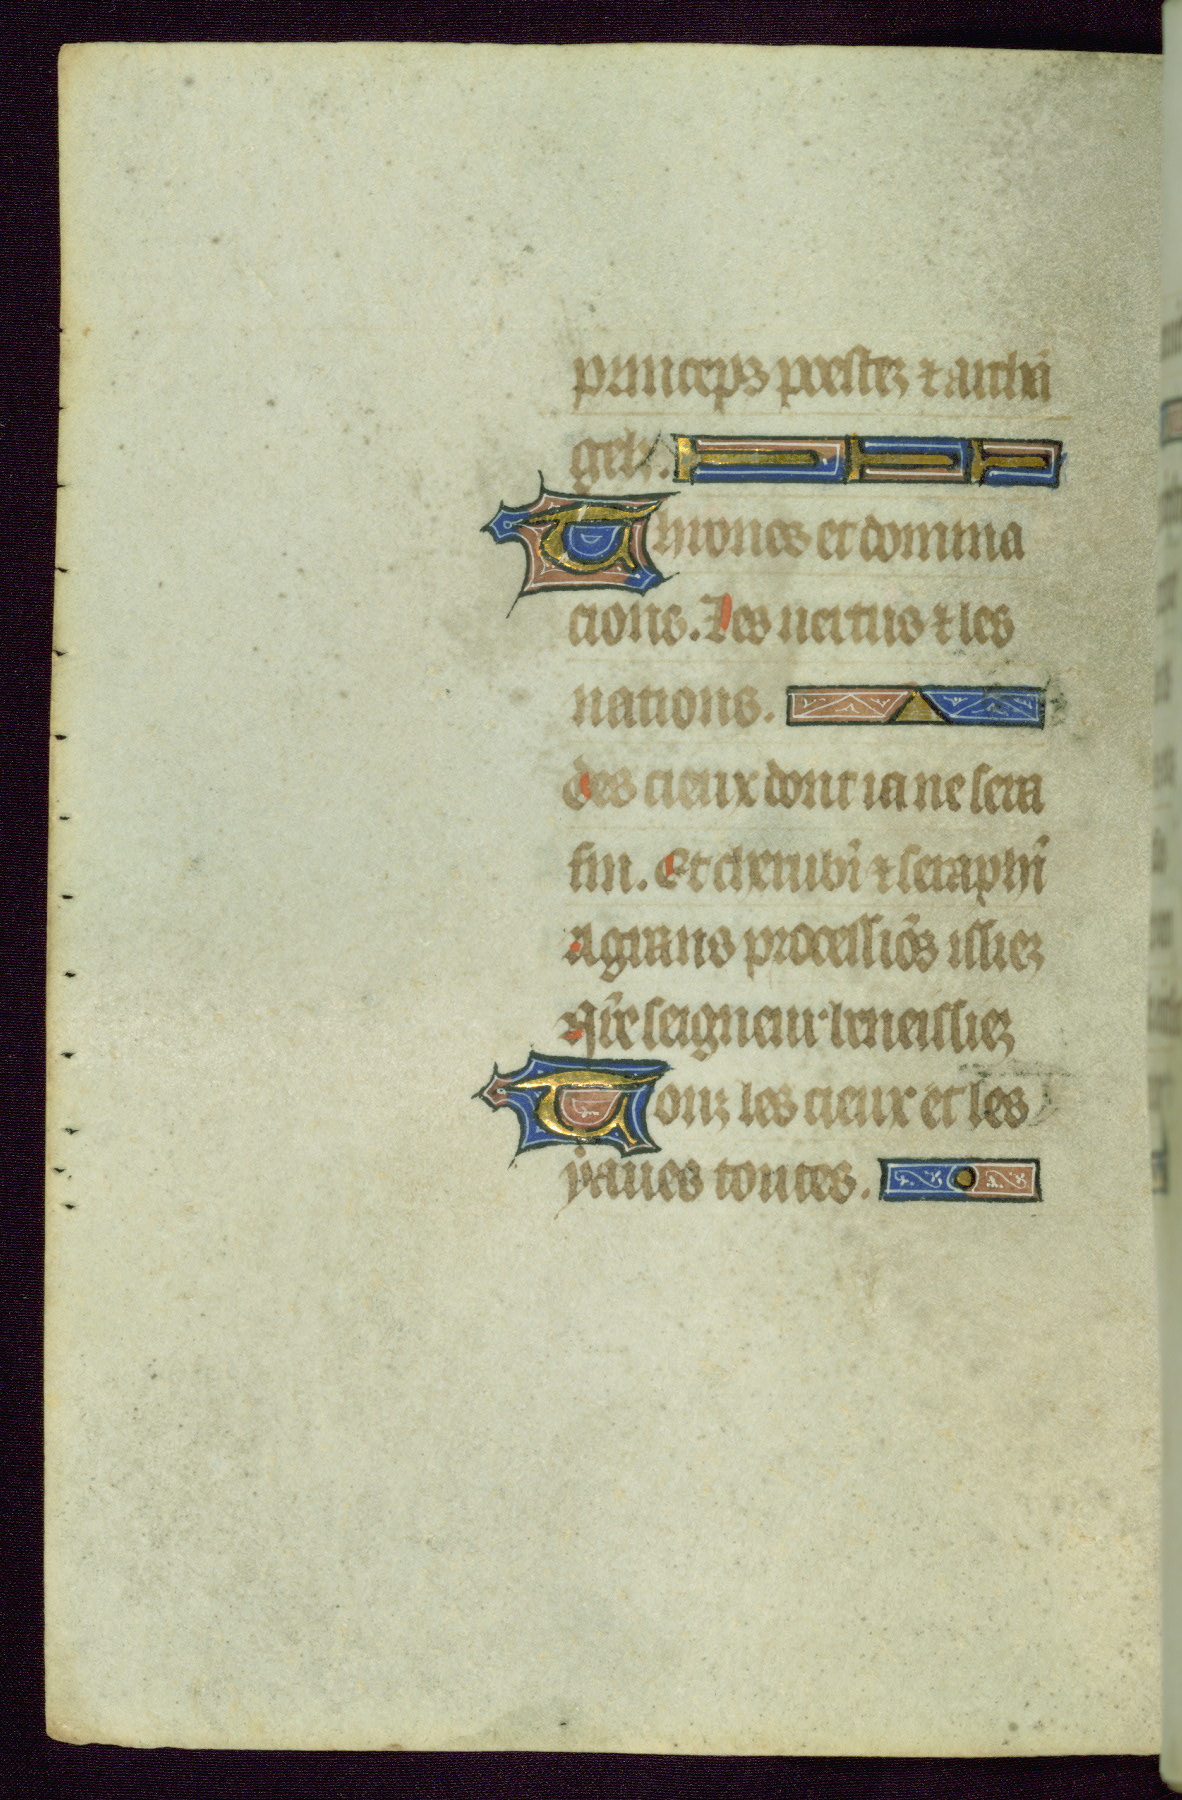 princeps poestez ⁊ archã
gelz.
Thrones et domina
cions. Des uertus ⁊ les
nations.
des cieux dont ia ne sera
fin. Et cherubĩ ⁊ seraphĩ
A grans processiõs issiez
Nr̃e seigneur beneissiez
Touz les cieux et les
yaues toutes.